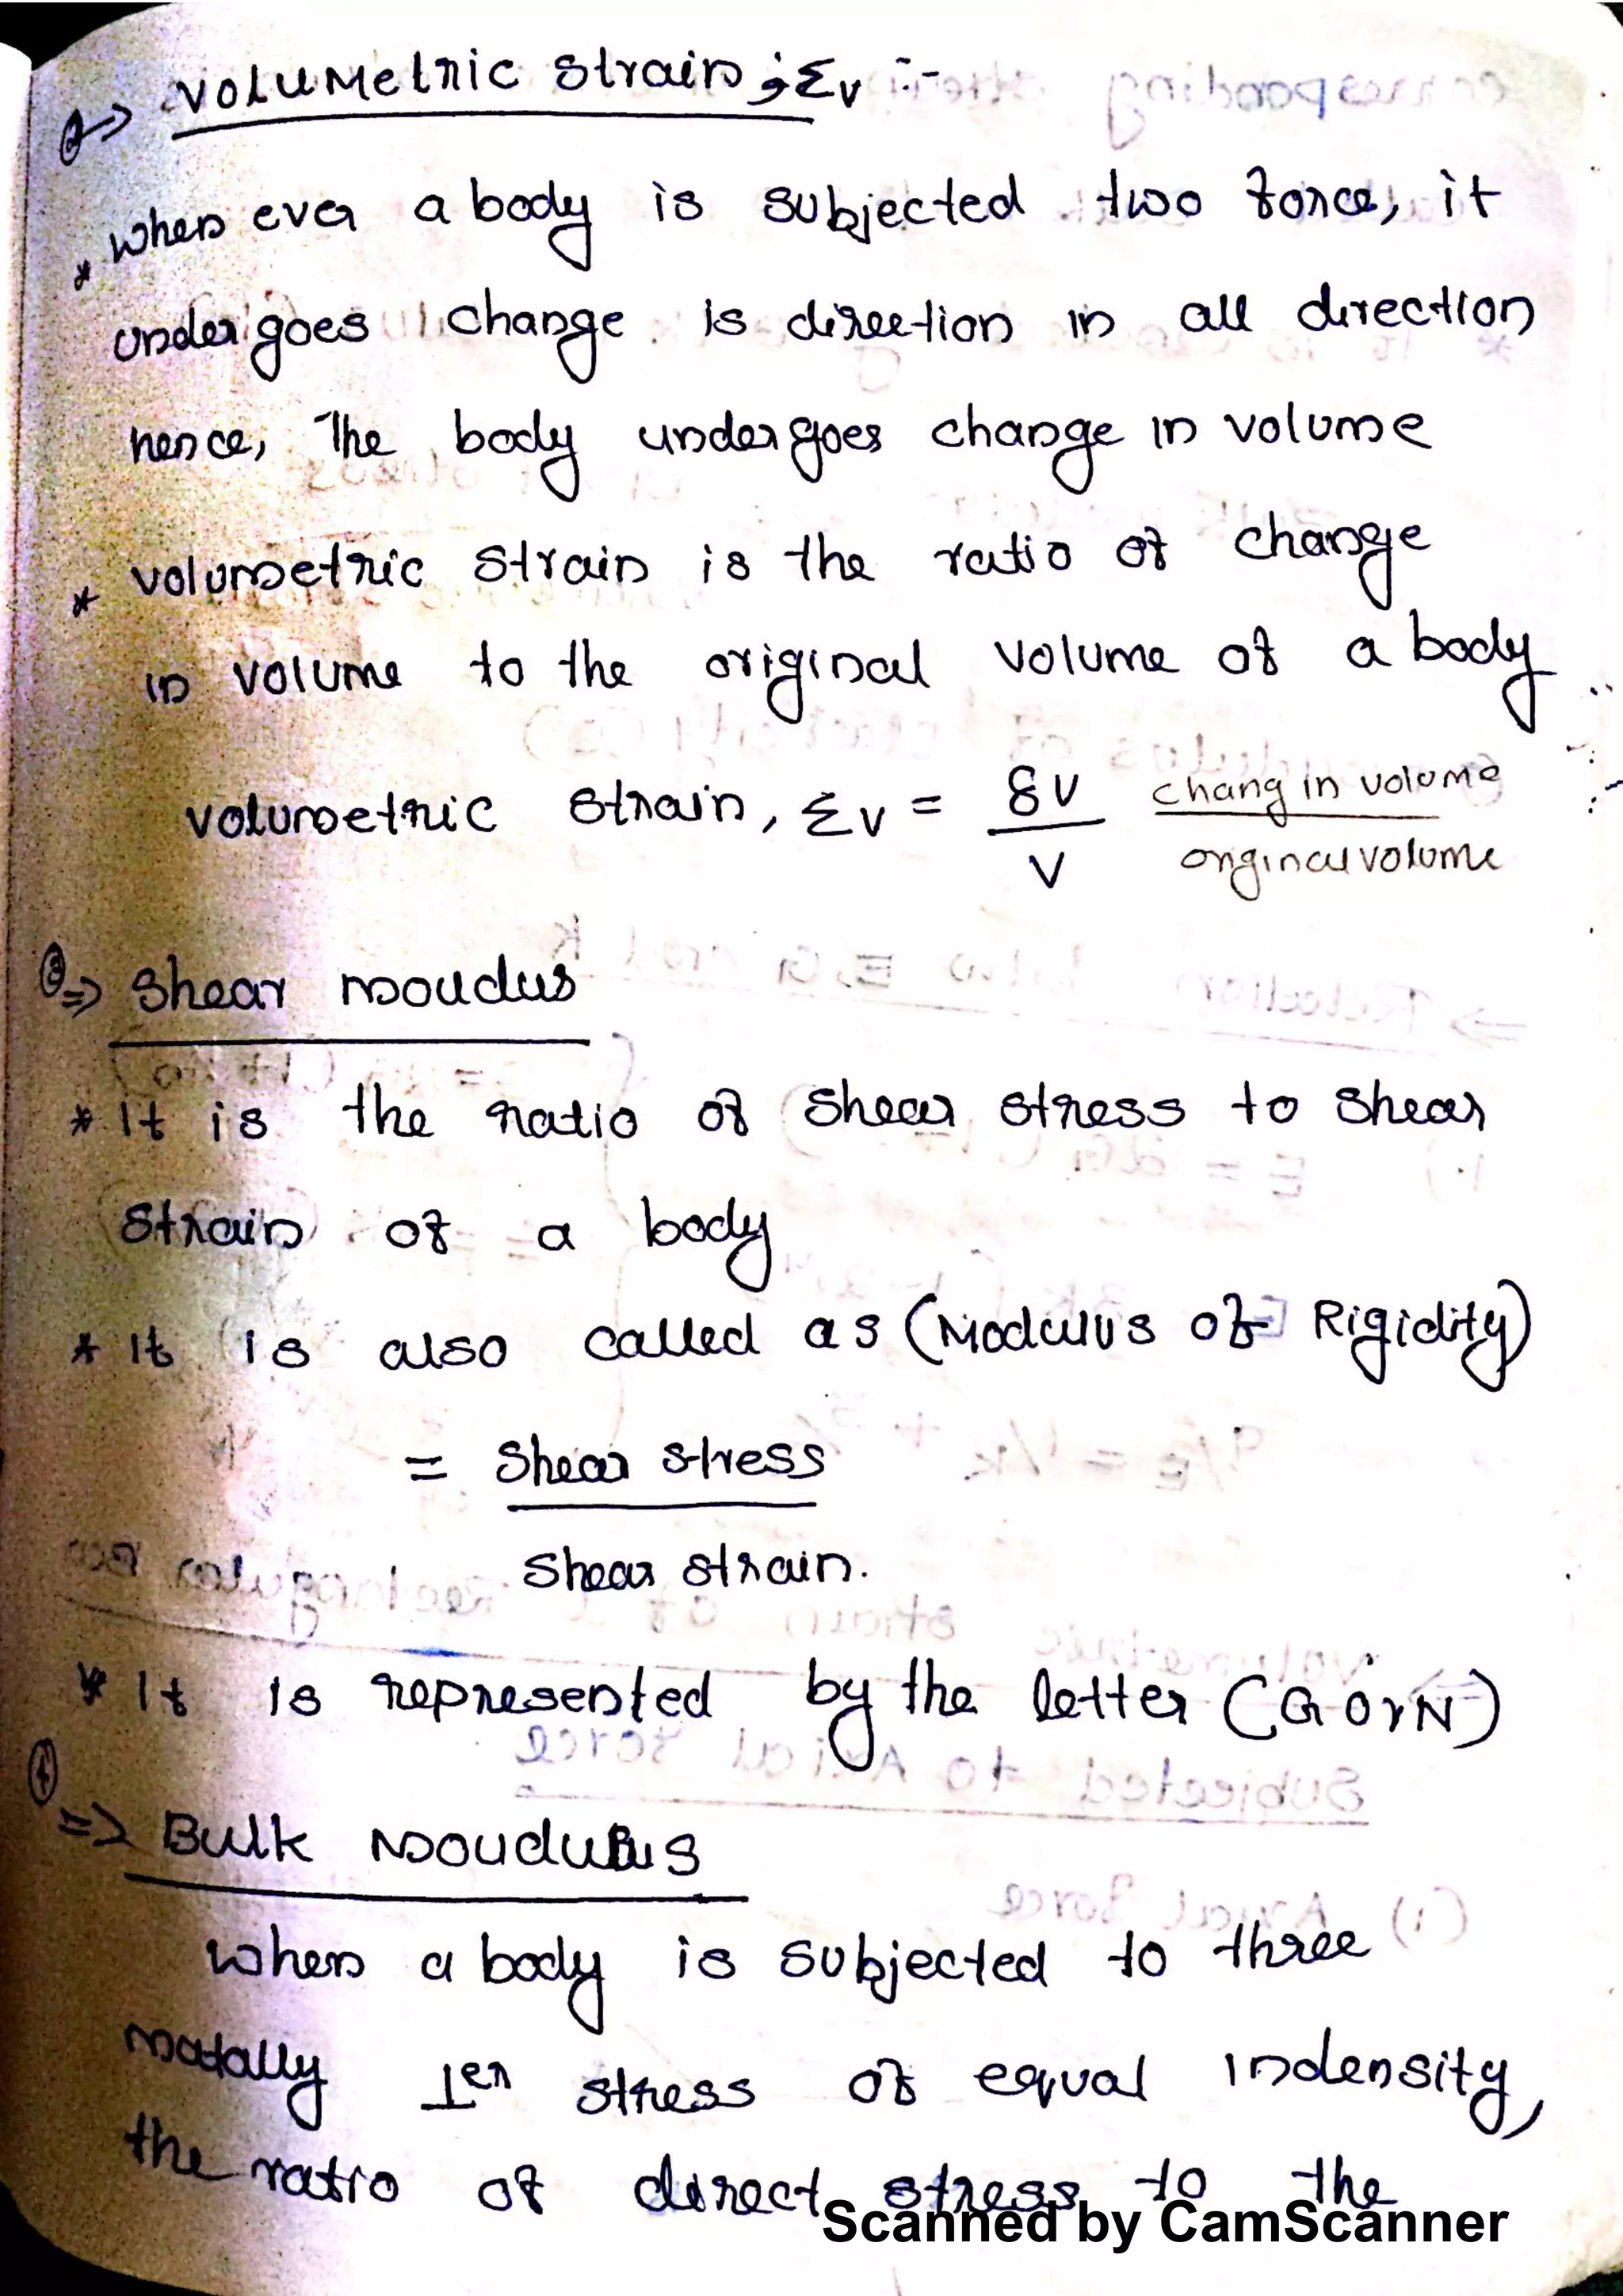 2=> volumetric strain, Σv :-
* when ever a body is subjected two force, it
undergoes change is direction in all direction
hence, The body undergoes change in volume
* volumetric strain is the ratio of change
in volume to the original volume of a body
volumetric strain, Σv = δV / V chang in volume / original volume
3=> Shear moudus
* It is the ratio of shear stress to shear
strain of a body
* It is also called as (Modulus of Rigidity)
= Shear stress
Shear strain.
* It is represented by the letter (G or N)
4 => Bulk moudulus
when a body is subjected to three
matally ⊥er stress of equal indensity,
the ratio of direct stress to the
Scanned by CamScanner